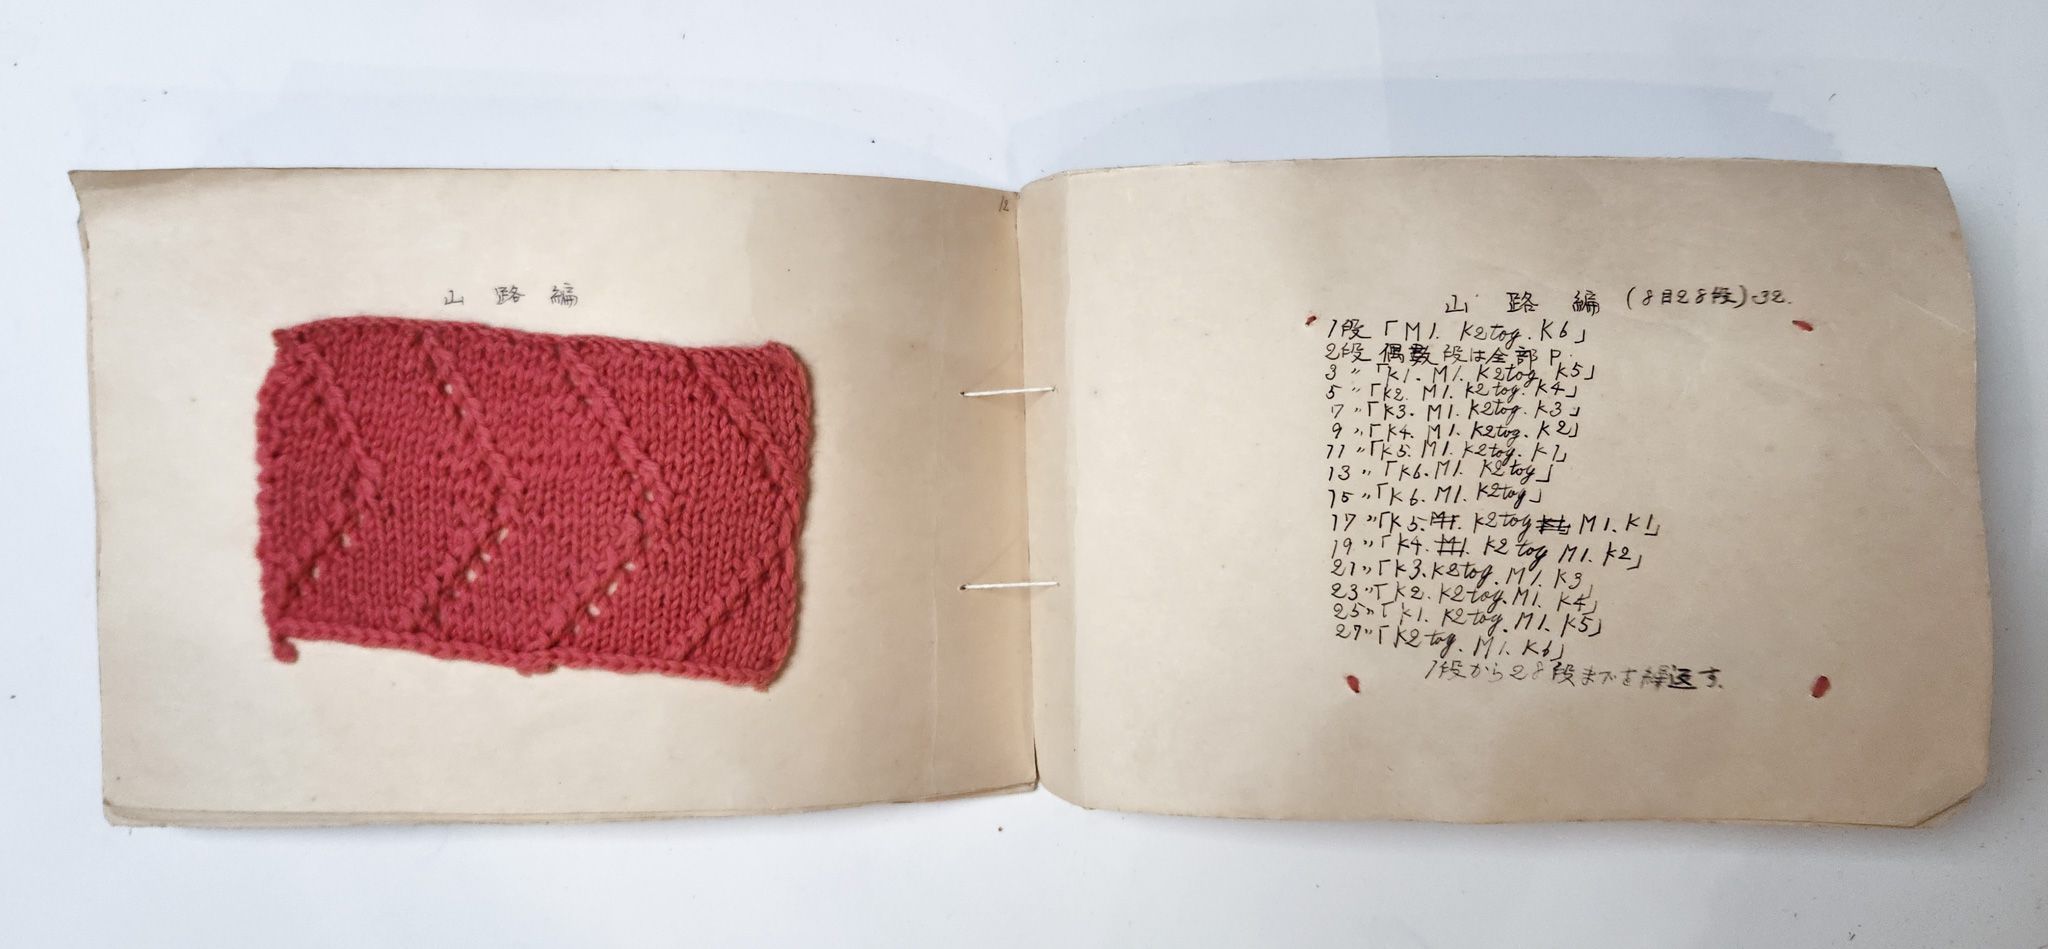 山路編
12
山路編 (8目28段) 32.
1段「M1. K2tog. K6」
2段 偶数段は全部 P.
3〃「K1. M1. K2tog. K5」
5〃「K2. M1. K2tog. K4」
7〃「K3. M1. K2tog. K3」
9〃「K4. M1. K2tog. K2」
11〃「K5. M1. K2tog. K1」
13〃「K6. M1. K2tog」
15〃「K6. M1. K2tog」
17〃「K5. K2tog M1. K1」
19〃「K4. K2tog M1. K2」
21〃「K3. K2tog. M1. K3」
23〃「K2. K2tog. M1. K4」
25〃「K1. K2tog. M1. K5」
27〃「K2tog. M1. K6」
1段から28段までを繰返す.